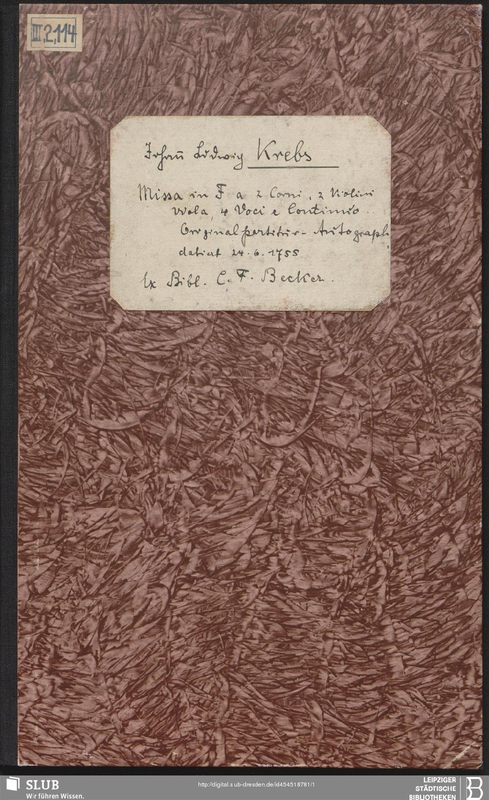 III,2,114
Johañ Ludwig Krebs
Missa in F a 2 Corni, 2 Violini
Viola, 4 Voci e Continuo
Originalpartitur - Autograph
datirt 24.6.1755
Ex Bibl. C. F. Becker.
SLUB
Wir führen Wissen.
http://digital.slub-dresden.de/id454518781/1
LEIPZIGER
STÄDTISCHE
BIBLIOTHEKEN